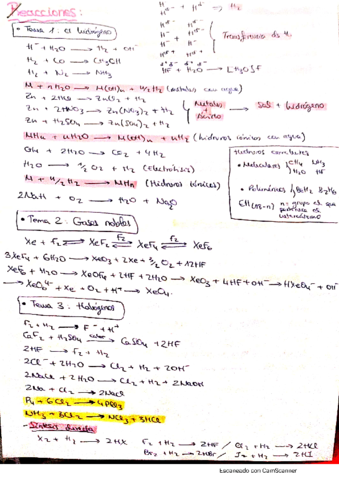 Reacciones:
• Tema 1: el hidrógeno
H⁻ + H⁺ → H₂
Transferencias de H.
H⁻ + H₂O → H₂ + OH⁻
HF + H₂O → [H₃O]F
H₂ + CO → CH₃OH
H₂ + N₂ → NH₃
M + nH₂O → M(OH)n + n/2 H₂ (metales con agua)
Zn + 2HCl → ZnCl₂ + H₂
Zn + 2HNO₃ → Zn(NO₃)₂ + H₂
Zn + H₂SO₄ → Zn(SO₄) + H₂
Metales + ácido → Sal + hidrógeno
MHn + nH₂O → M(OH)n + nH₂ (hidruros iónicos con agua)
CH₄ + 2H₂O → CO₂ + 4H₂
H₂O → ½ O₂ + H₂ (electrólisis)
M + n/2 H₂ → MHn (Hidruros iónicos)
2NaH + O₂ → H₂O + Na₂O
Hidruros covalentes
• Moleculares CH₄ NH₃
H₂O HF
• Poliméricos BeH₂ B₂H₆
EH(18-n) n = grupo al que
pertenece el
• Tema 2: Gases nobles
Xe + F₂ → XeF₂ F₂→ XeF₄ F₂→ XeF₆
3XeF₄ + 6H₂O → XeO₃ + 2Xe + 3/2 O₂ + 12HF
XeF₆ + H₂O → XeOF₄ + 2HF + 2H₂O → XeO₃ + 4HF + OH⁻ → HXeO₄⁻ + OH⁻
→ XeO₆⁴⁻ + Xe + O₂ + H⁺ → XeO₄
• Tema 3: Halógenos
F₂ + H₂ → F⁻ + H⁺
CaF₂ + H₂SO₄ calor→ CaSO₄ + 2HF
2HF → F₂ + H₂
2Cl⁻ + 2H₂O → Cl₂ + H₂ + 2OH⁻
2NaCl + 2H₂O → Cl₂ + H₂ + 2NaOH
2Na + Cl₂ → 2NaCl
P₄ + 6Cl₂ → 4PCl₃
NH₃ + 3Cl₂ → NCl₃ + 3HCl
- Síntesis directa
X₂ + H₂ → 2HX F₂ + H₂ → 2HF / Cl₂ + H₂ → 2HCl
Br₂ + H₂ → 2HBr / I₂ + H₂ → 2HI
Escaneado con CamScanner